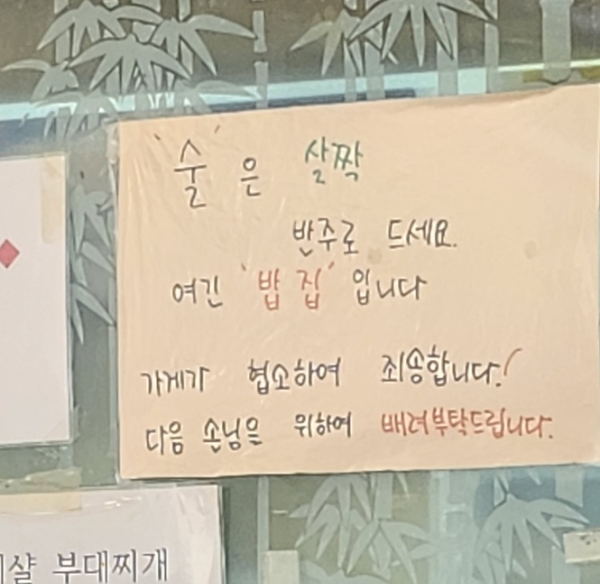 '술'은 살짝
반주로 드세요.
여긴 '밥집' 입니다
가게가 협소하여 죄송합니다!
다음 손님을 위하여 배려부탁드립니다.
부대찌개